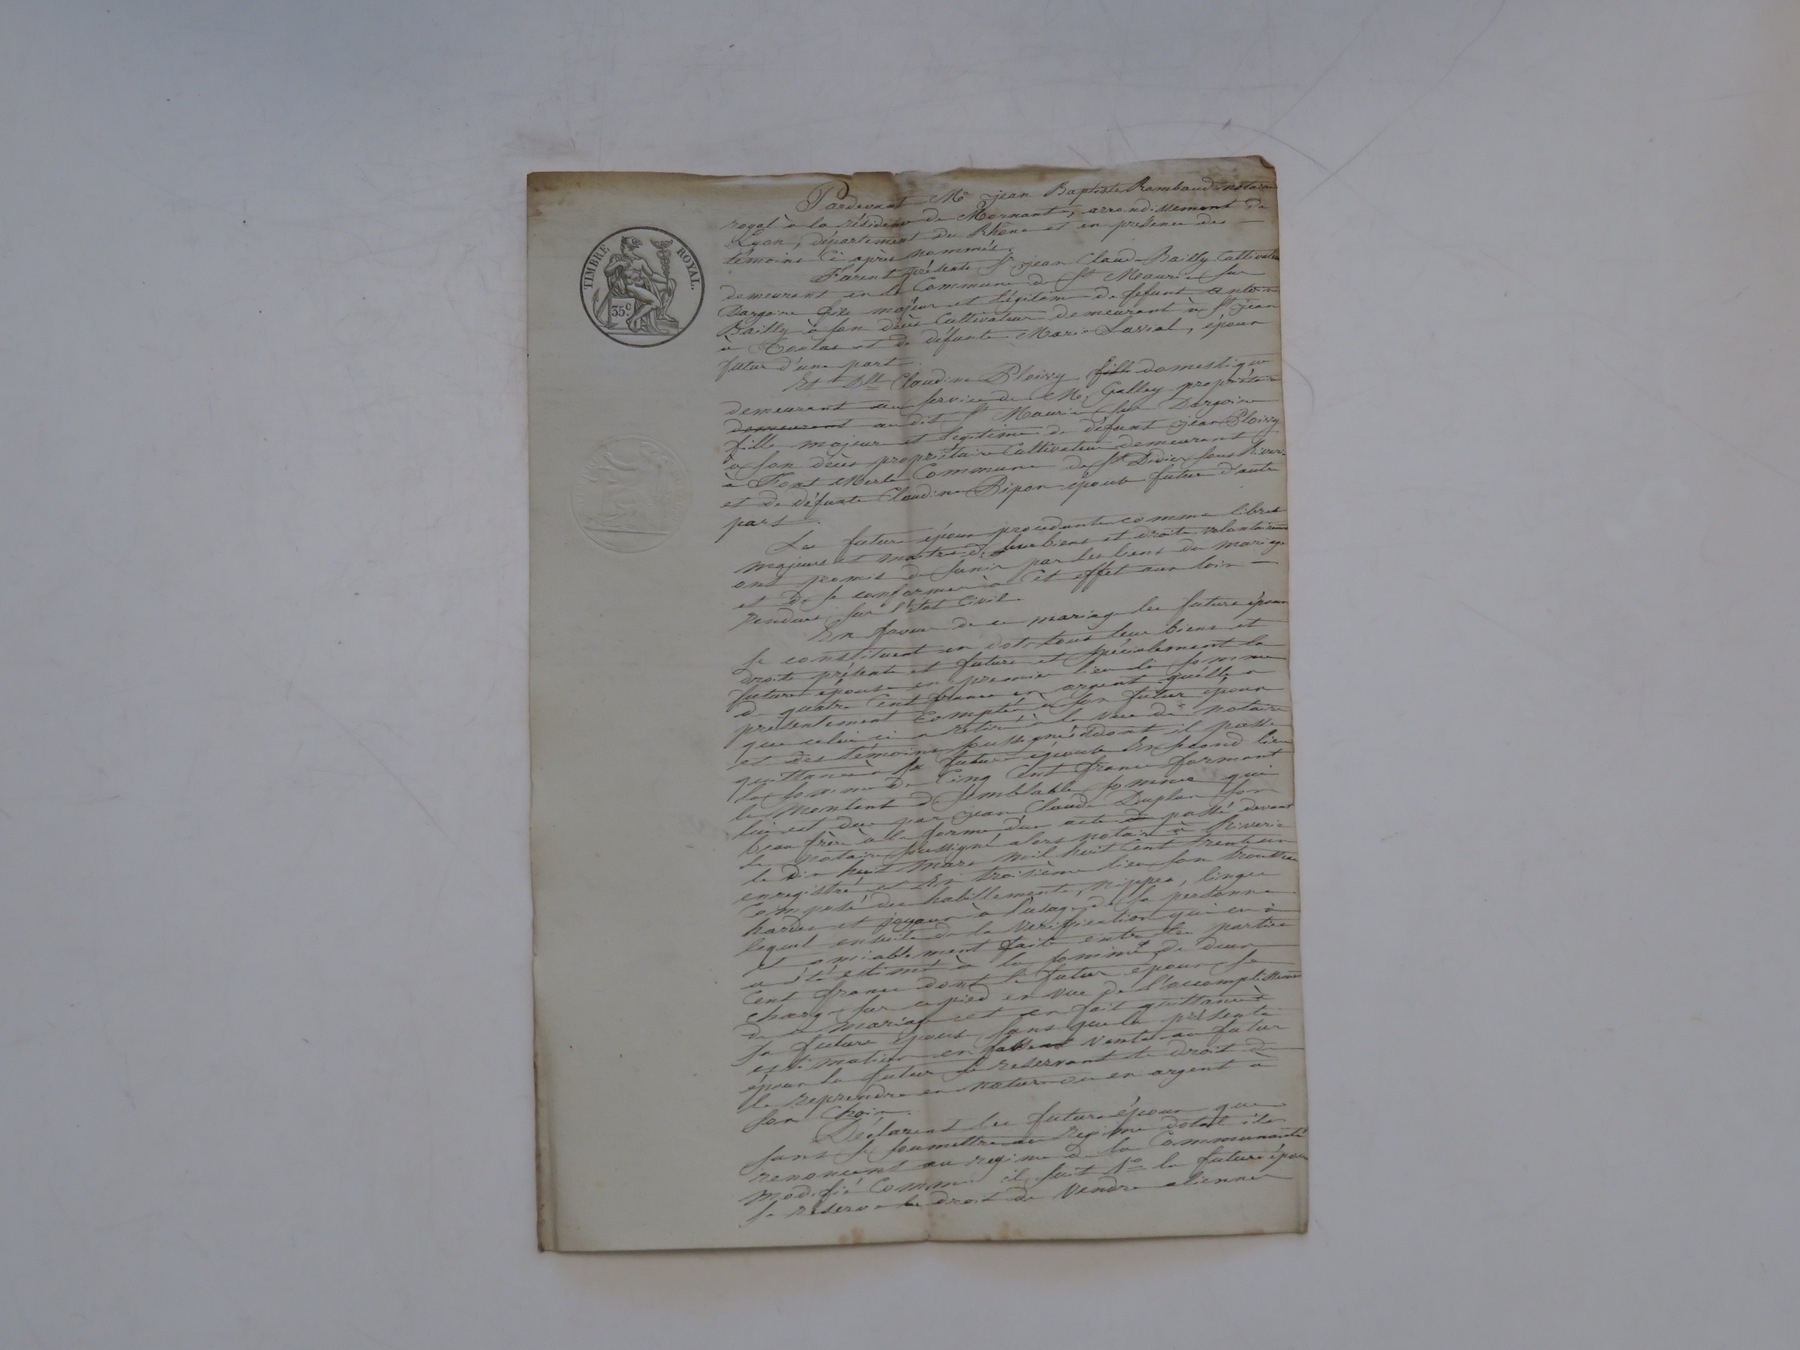 TIMBRE ROYAL.
35c
Pardevant Me jean Baptiste Rambaud notaire
royal à la résidence de Mornant, arrondissement de
Lyon, département du Rhône et en présence des
témoins ci après nommés,
Furent présents Sr jean Claude Bailly Cultivateur
demeurant en la Commune de St Maurice sur
Dargoire fils majeur et légitime de défunt antoine
Bailly à son décès Cultivateur demeurant à St jean
à Toulas et de défunte Marie Lavial, époux
futur d'une part
Et Dlle Claudine Ploivy fille domestique
demeurant au service de Mr Gallay propriétaire
demeurant au dit St Maurice sur Dargoire
fille majeure et légitime de défunt jean Ploivy
à son décès propriétaire Cultivateur demeurant
à Font Merle Commune de St Didier sous Riverie
et de défunte Claudine Pipon épouse future d'autre
part.
Les futurs époux procédants comme libres
majeurs et maitres de leurs biens et droits, volontairement
ont promis de s'unir par les liens du mariage
et de se conformer à Cet effet aux loix
rendues sur l'état Civil.
En faveur de ce mariage les futurs époux
se constituent en dot tous leurs biens et
droits présents et futurs et spécialement la
future épouse en premier lieu la somme
de quatre Cent francs en argent qu'elle a
présentement Comptée à son futur époux
que celui ci a retiré à la vue du notaire
et des témoins soussignés dont il passe
quittance à sa future épouse En second lieu
la somme de Cinq Cent francs formant
le montant de semblable somme qui
lui est due par jean Claude Duplan son
beau frère à la forme d'un acte passé devant
le notaire soussigné alors notaire à Riverie
le dix huit mars mil huit Cent trente un
enregistré et En troisième lieu son trousseau
Composé des habillements, nippes, linges
hardes et joyaux à l'usage de sa personne
lequel ensuite de la Vérification qui en a
été amiablement faite entre les parties
a été estimé à la somme de deux
Cent francs dont le futur époux se
charge sur ce pied en vue de l'accomplissement
de ce mariage et en fait quittance à
sa future épouse sans que la présente
estimation en fasse vente au futur
époux la future se réservant le droit de
le reprendre en nature ou en argent à
son Choix.
Déclarent les futurs époux que
sans se soumettre au régime dotal ils
renoncent au régime de la Communauté
modifié Comme il suit 1o la future épouse
se réserve le droit de Vendre aliéner